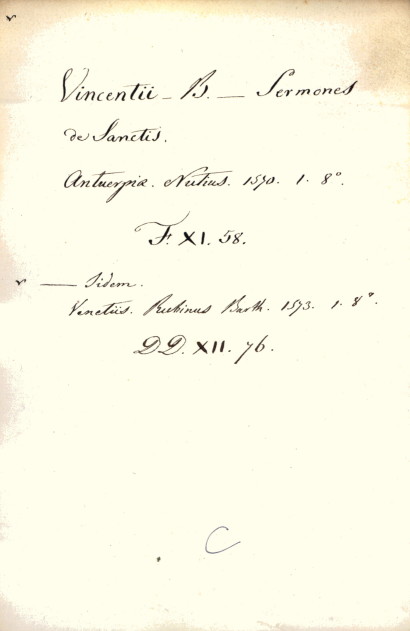 Vincentii - B. - Sermones
de Sanctis.
Antuerpiæ. Nutius. 1570. 1. 8°.
F. XI. 58.
— Iidem.
Venetiis. Rubinus Barth. 1573. 1. 8°.
DD. XII. 76.
C